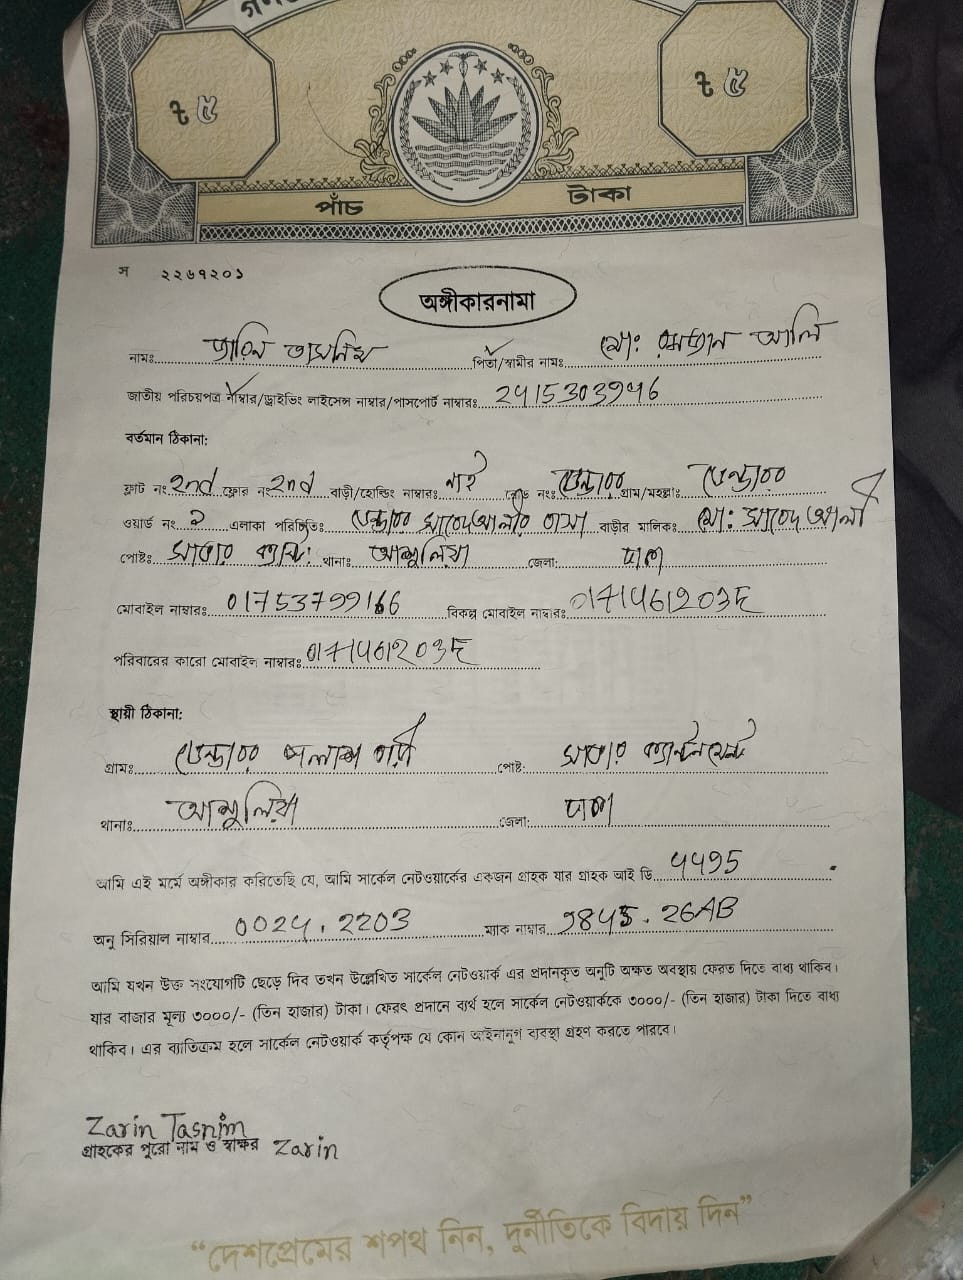 ৳ ৫ ৳ ৫
পাঁচ টাকা
স ২২৬৭২০১
অঙ্গীকারনামা
নামঃ জারিন তাসনিম পিতা/স্বামীর নামঃ মো: রমজান আলি
জাতীয় পরিচয়পত্র নাম্বার/ড্রাইভিং লাইসেন্স নাম্বার/পাসপোর্ট নাম্বারঃ
বর্তমান ঠিকানা:
ফ্লাট নং 2nd ফ্লোর নং 2nd বাড়ী/হোল্ডিং নাম্বারঃ নাই রোড নং গ্রাম/মহল্লাঃ
ওয়ার্ড নং ২ এলাকা পরিচিতিঃ বাড়ীর মালিকঃ মো:
পোষ্টঃ সাভার ক্যান্ট: থানাঃ আশুলিয়া জেলা: ঢাকা
মোবাইল নাম্বারঃ 01753799166 বিকল্প মোবাইল নাম্বারঃ
পরিবারের কারো মোবাইল নাম্বারঃ
স্থায়ী ঠিকানা:
গ্রামঃ পোষ্ট: সাভার ক্যান্টনমেন্ট
থানাঃ আশুলিয়া জেলা: ঢাকা
আমি এই মর্মে অঙ্গীকার করিতেছি যে, আমি সার্কেল নেটওয়ার্কের একজন গ্রাহক যার গ্রাহক আই ডি
অনু সিরিয়াল নাম্বার ম্যাক নাম্বার
আমি যখন উক্ত সংযোগটি ছেড়ে দিব তখন উল্লেখিত সার্কেল নেটওয়ার্ক এর প্রদানকৃত অনুটি অক্ষত অবস্থায় ফেরত দিতে বাধ্য থাকিব।
যার বাজার মূল্য ৩০০০/- (তিন হাজার) টাকা। ফেরৎ প্রদানে ব্যর্থ হলে সার্কেল নেটওয়ার্ককে ৩০০০/- (তিন হাজার) টাকা দিতে বাধ্য
থাকিব। এর ব্যতিক্রম হলে সার্কেল নেটওয়ার্ক কর্তৃপক্ষ যে কোন আইনানুগ ব্যবস্থা গ্রহণ করতে পারবে।
Zarin Tasnim
গ্রাহকের পুরো নাম ও স্বাক্ষর Zarin
“দেশপ্রেমের শপথ নিন, দুর্নীতিকে বিদায় দিন”